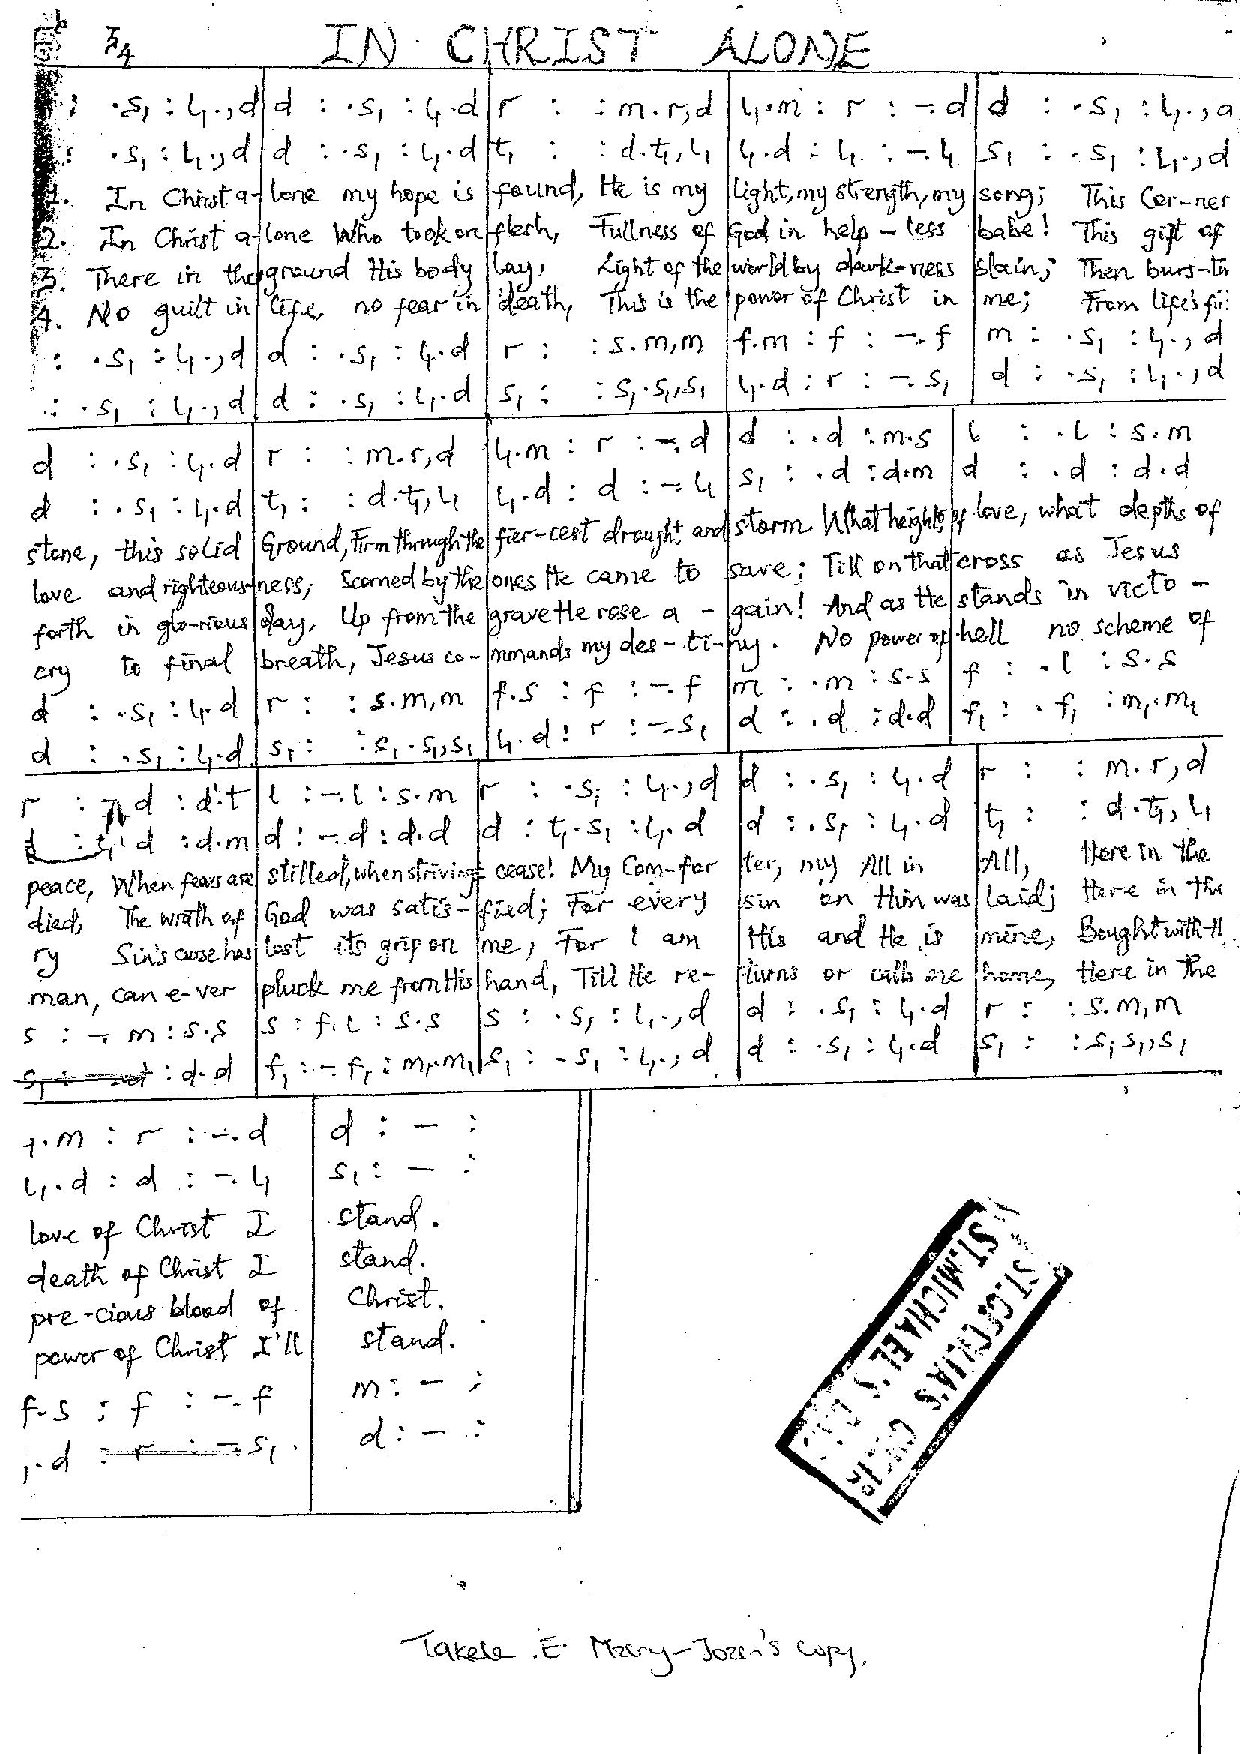 3/4 IN CHRIST ALONE
: .s₁ : l₁.,d | d : .s₁ : l₁.d | r : : m.r,d | l₁.m : r : -.d | d : .s₁ : l₁.,d
: .s₁ : l₁.,d | d : .s₁ : l₁.d | t₁ : : d.t₁,l₁ | l₁.d : l₁ : -.l₁ | s₁ : .s₁ : l₁.,d
1. In Christ a- | lone my hope is | found, He is my | light, my strength, my | song; This Cor-ner
2. In Christ a- | lone Who took on | flesh, Fullness of | God in help-less | babe! This gift of
3. There in the | ground His body | lay, Light of the | world by dark-ness | slain; Then burs-tin
4. No guilt in | life, no fear in | death, This is the | power of Christ in | me; From life's fi
: .s₁ : l₁.,d | d : .s₁ : l₁.d | r : : s.m,m | f.m : f : -.f | m : .s₁ : l₁.,d
: .s₁ : l₁.,d | d : .s₁ : l₁.d | s₁ : : s₁.s₁,s₁ | l₁.d : r : -.s₁ | d : .s₁ : l₁.,d
d : .s₁ : l₁.d | r : : m.r,d | l₁.m : r : -.d | d : .d : m.s | l : .l : s.m
d : .s₁ : l₁.d | t₁ : : d.t₁,l₁ | l₁.d : d : -.l₁ | s₁ : .d : d.m | d : .d : d.d
stone, this solid | Ground, Firm through the | fier-cest drought and | storm What heights of | love, what depths of
love and righteous- | ness, Scorned by the | ones He came to | save; Till on that | cross as Jesus
forth in glo-rious | day, Up from the | grave He rose a- | gain! And as He | stands in victo-
cry to final | breath, Jesus co- | mmands my des-ti- | ny. No power of | hell no scheme of
d : .s₁ : l₁.d | r : : s.m,m | f.s : f : -.f | m : .m : s.s | f : .l : s.s
d : .s₁ : l₁.d | s₁ : : s₁.s₁,s₁ | l₁.d : r : -.s₁ | d : .d : d.d | f₁ : .f₁ : m₁.m₁
r : d : d'.t | l : -.l : s.m | r : .s₁ : l₁.,d | d : .s₁ : l₁.d | r : : m.r,d
d : t₁.d : d.m | d : -.d : d.d | d : t₁.s₁ : l₁.d | d : .s₁ : l₁.d | t₁ : : d.t₁,l₁
peace, When fears are | stilled, when strivings | cease! My Com-for | ter, my All in | All, Here in the
died, The wrath of | God was satis- | fied; For every | sin on Him was | laid; Here in the
ry Sin's curse has | lost its grip on | me, For I am | His and He is | mine, Bought with
man, can e-ver | pluck me from His | hand, Till He re- | turns or calls me | home, Here in the
s : -.m : s.s | s : f.l : s.s | s : .s₁ : l₁.,d | d : .s₁ : l₁.d | r : : s.m,m
: d.d | f₁ : -.f₁ : m₁.m₁ | s₁ : .s₁ : l₁.,d | d : .s₁ : l₁.d | s₁ : : s₁.s₁,s₁
.m : r : -.d | d : - :
l₁.d : d : -.l₁ | s₁ : - :
love of Christ I | stand.
death of Christ I | stand.
pre-cious blood of | Christ.
power of Christ I'll | stand.
f.s : f : -.f | m : - :
.d : r : -.s₁ | d : - :
ST. CECILIA'S CHOIR
ST. MICHAEL'S
Takele .E. Mary-Joan's copy.